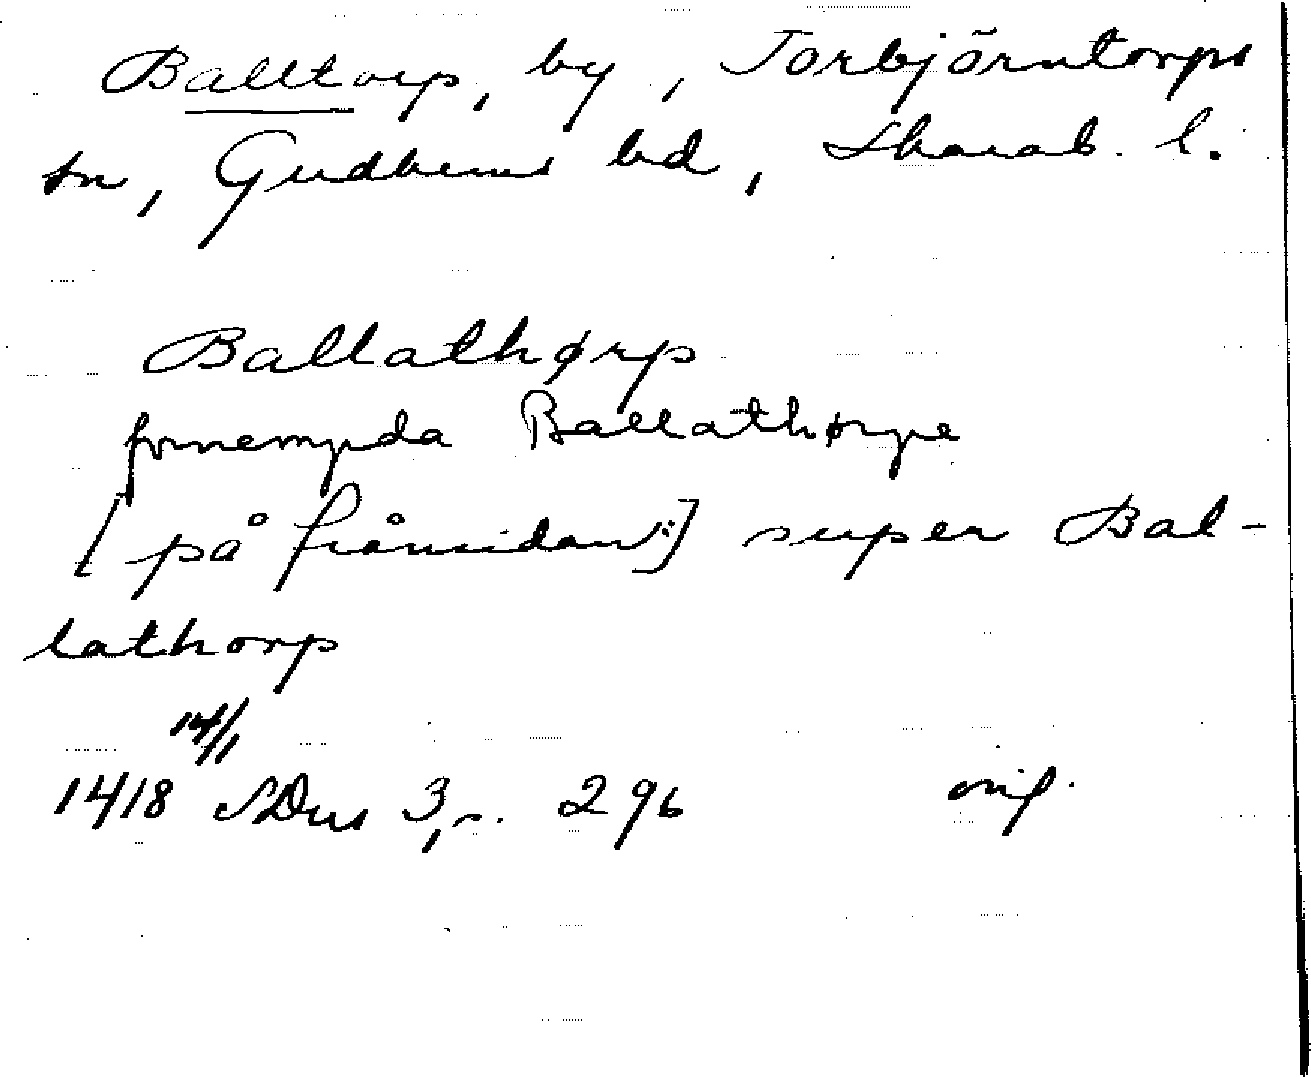 Balltorp, by, Torbjörntorps
sn, Gudhems hd, Skarab. l.
Ballathørp
fornempda Ballathørpe
[på frånsidan:] super Bal-
lathorp
14/1
1418 SDns 3, s. 296 orig.